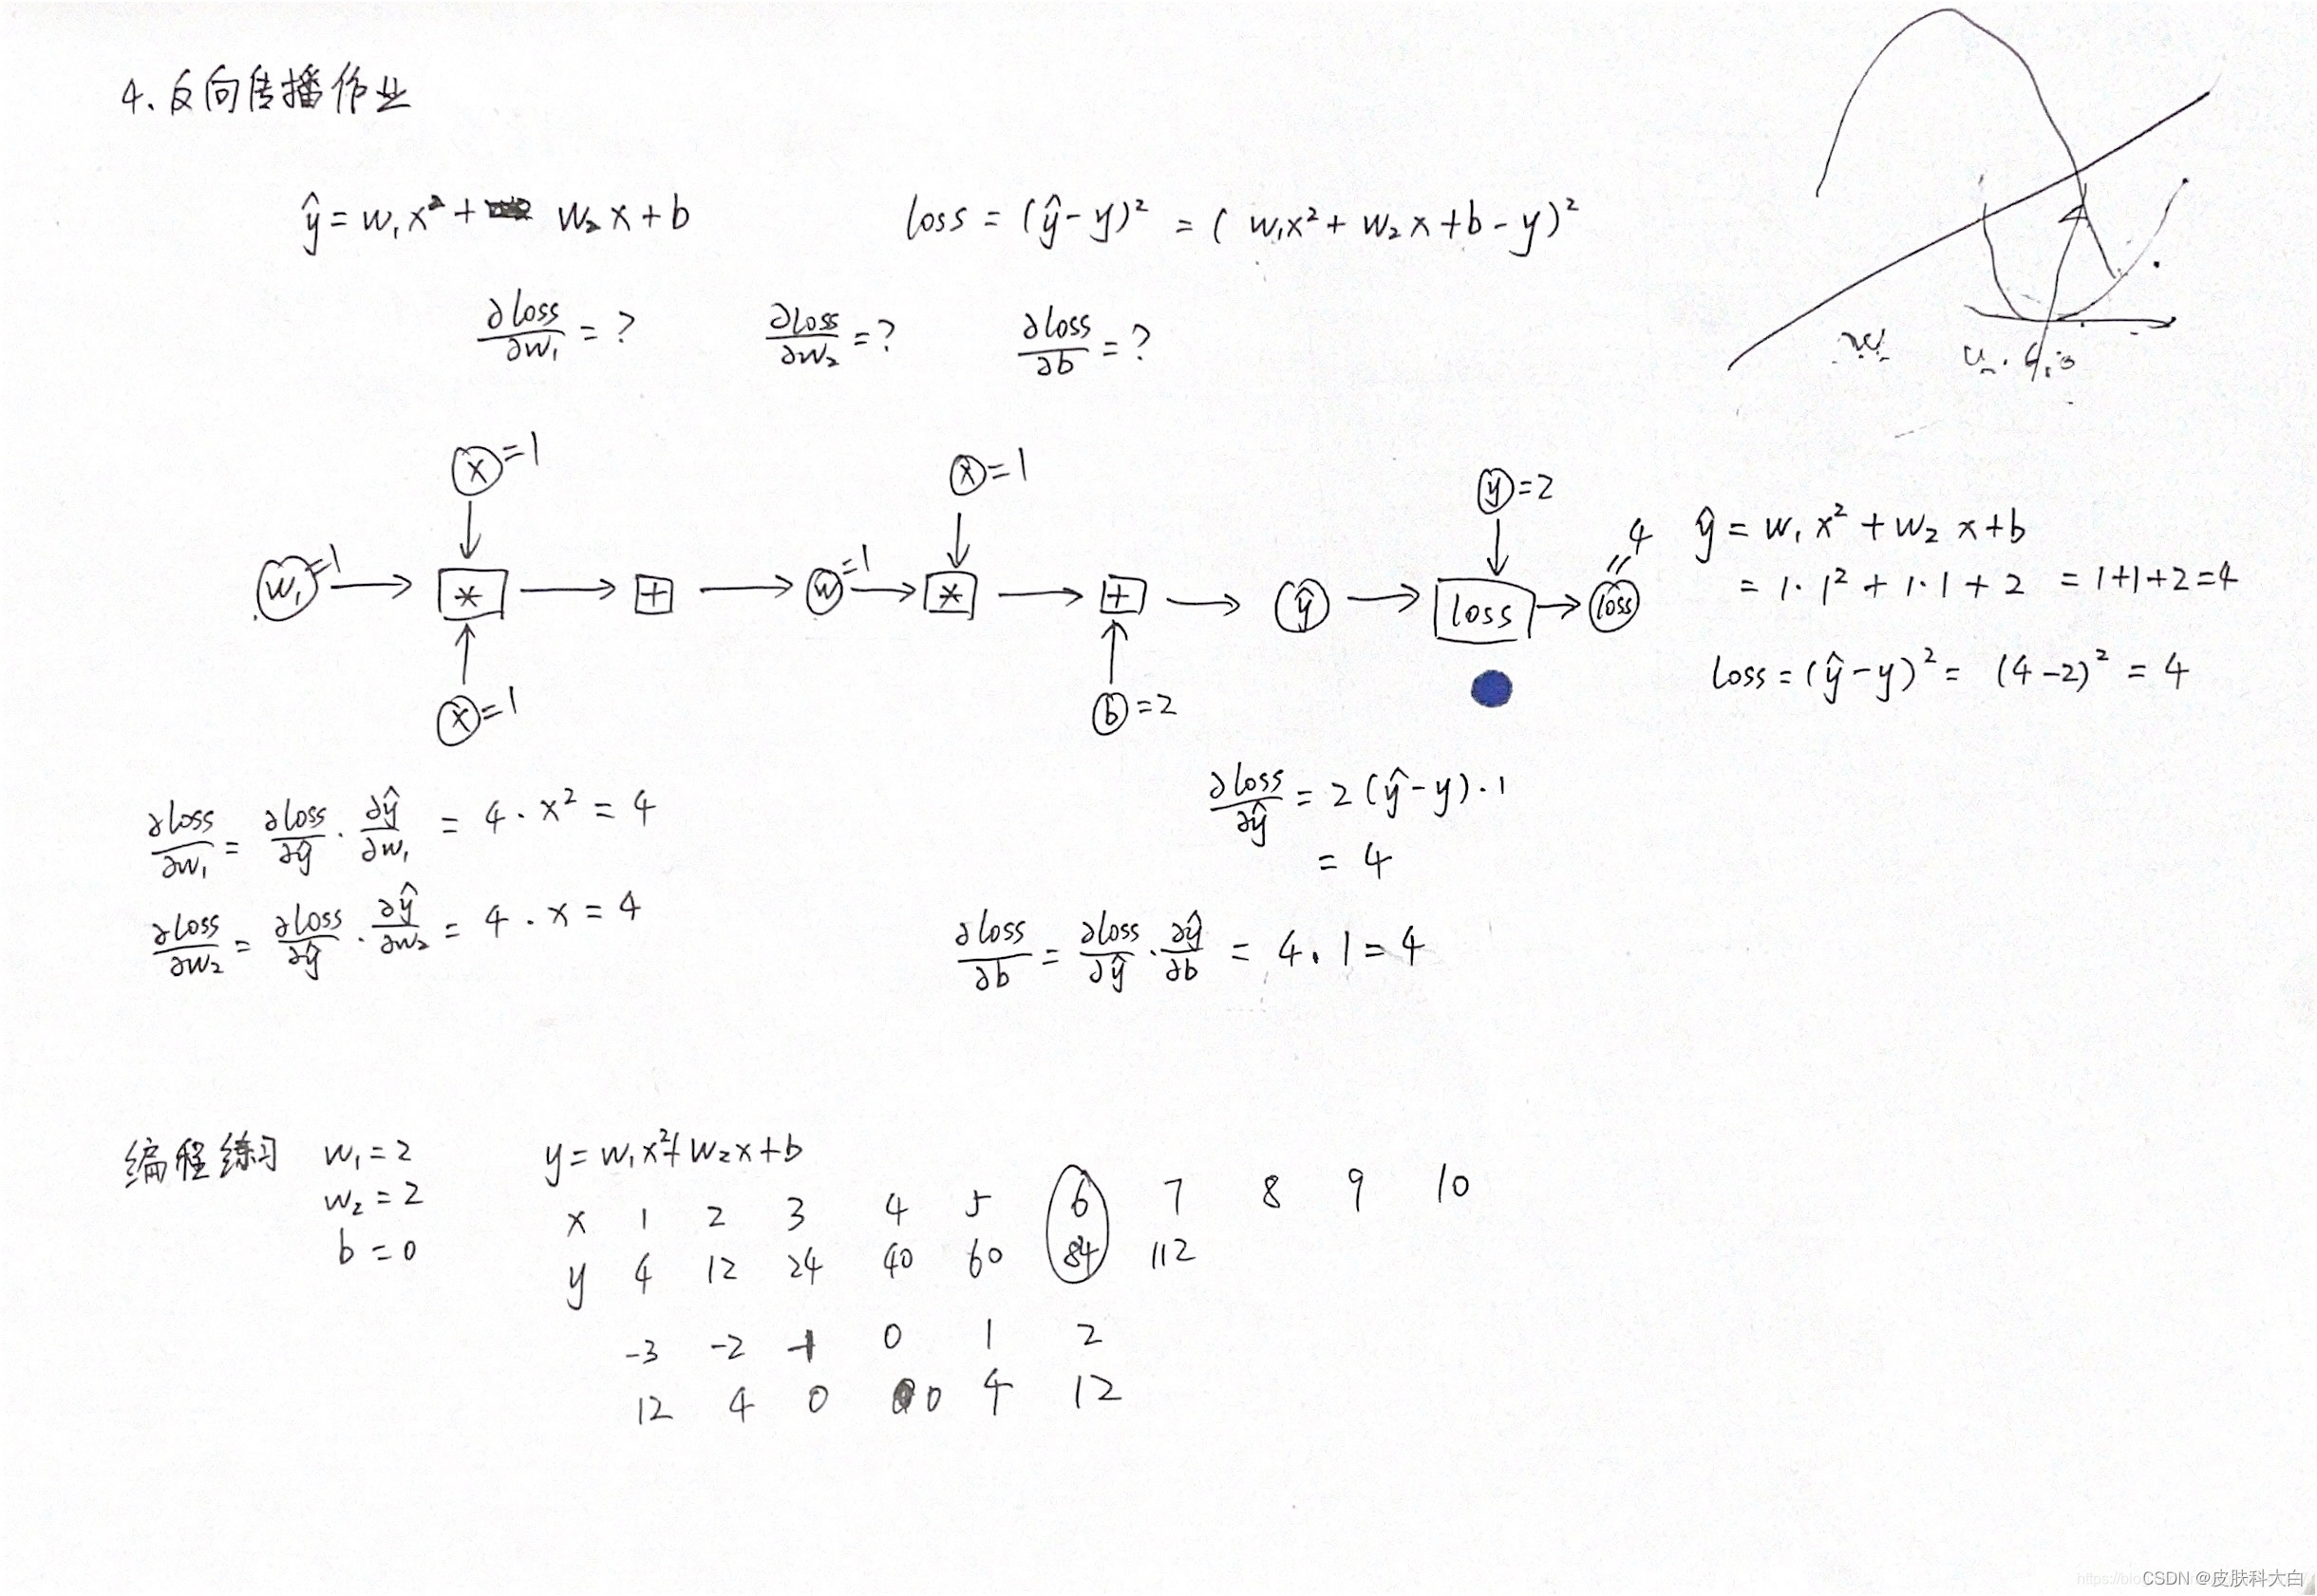 4. 反向传播作业
ŷ = w₁x² + w₂x + b
loss = (ŷ - y)² = (w₁x² + w₂x + b - y)²
∂loss/∂w₁ = ?
∂loss/∂w₂ = ?
∂loss/∂b = ?
x = 1
x = 1
y = 2
w₁ = 1 → * → + → w = 1 → * → + → ŷ → loss → loss = 4
x = 1
b = 2
ŷ = w₁x² + w₂x + b
= 1·1² + 1·1 + 2 = 1+1+2 = 4
loss = (ŷ - y)² = (4-2)² = 4
∂loss/∂ŷ = 2(ŷ - y)·1
= 4
∂loss/∂w₁ = ∂loss/∂ŷ · ∂ŷ/∂w₁ = 4·x² = 4
∂loss/∂w₂ = ∂loss/∂ŷ · ∂ŷ/∂w₂ = 4·x = 4
∂loss/∂b = ∂loss/∂ŷ · ∂ŷ/∂b = 4·1 = 4
编程练习
w₁ = 2
w₂ = 2
b = 0
y = w₁x² + w₂x + b
x 1 2 3 4 5 6 7 8 9 10
y 4 12 24 40 60 84 112
-3 -2 -1 0 1 2
12 4 0 0 4 12
CSDN @皮肤科大白